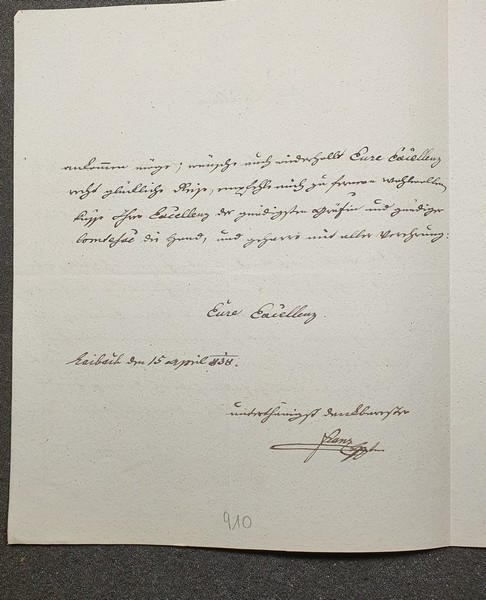 ankommen möge; wünsche auch wiederhollt Eure Excellenz
recht glückliche Reise, empfehle mich zu fernern Wohlwollen,
küsse Ihrer Excellenz der gnädigsten Gräfin und gnädiger
Comtesse die Hand, und geharre mit aller Verehrung:
Eure Excellenz.
Laibach den 15 april 838.
unterthänigst dankbarester
Franz
910